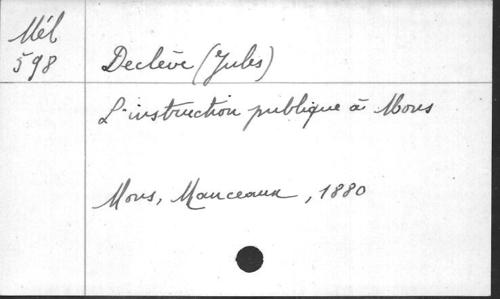 Mél
598
Declève (Jules)
L'instruction publique à Mons
Mons, Manceaux, 1880